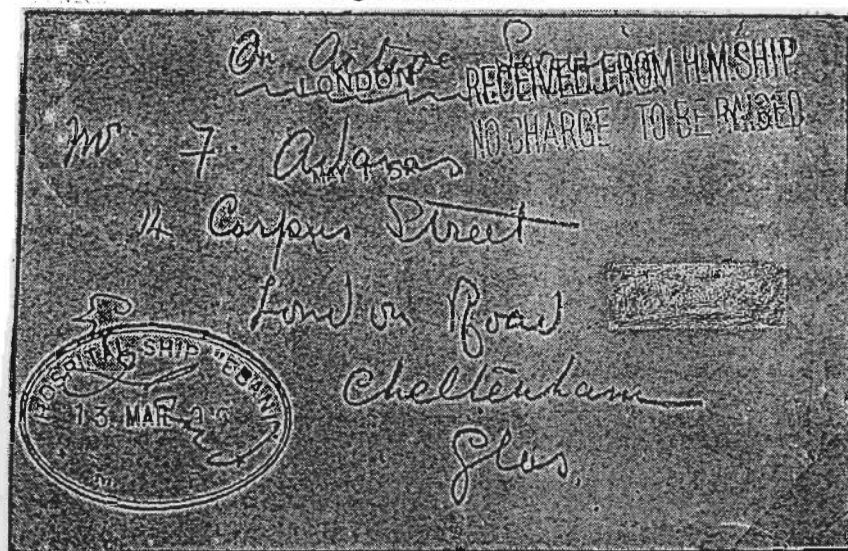 On Active Service
LONDON
RECEIVED FROM H.M. SHIP
NO CHARGE TO BE RAISED
Mr F Adams
MAY
14 Corpus Street
London Road
Cheltenham
Glos.
HOSPITAL SHIP "EBANI"
13 MAR